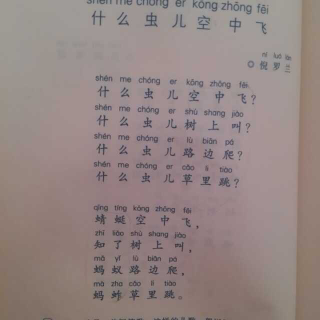 shén me chóng er kōng zhōng fēi
什么虫儿空中飞
ní luó lán
◎倪罗兰
shén me chóng er kōng zhōng fēi
什么虫儿空中飞？
shén me chóng er shù shàng jiào
什么虫儿树上叫？
shén me chóng er lù biān pá
什么虫儿路边爬？
shén me chóng er cǎo lǐ tiào
什么虫儿草里跳？
qīng tíng kōng zhōng fēi
蜻蜓空中飞，
zhī liǎo shù shàng jiào
知了树上叫，
mǎ yǐ lù biān pá
蚂蚁路边爬，
mà zha cǎo lǐ tiào
蚂蚱草里跳。